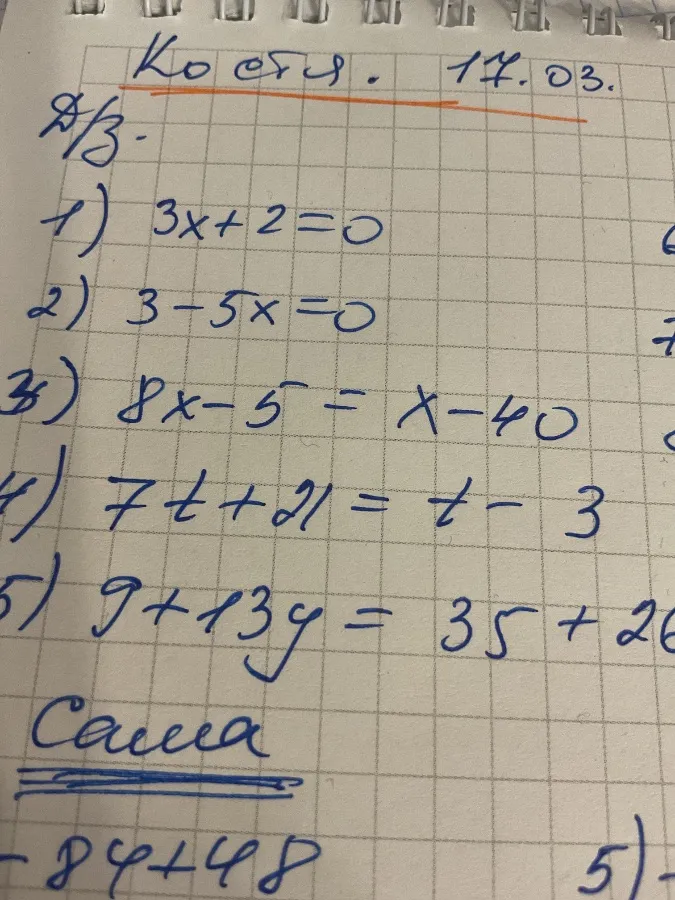 Костя. 17.03.
Д/З.
1) 3x+2=0
2) 3-5x=0
3) 8x-5=x-40
4) 7t+21=t-3
5) 9+13y=35+26
Саша
-84+48
5)-